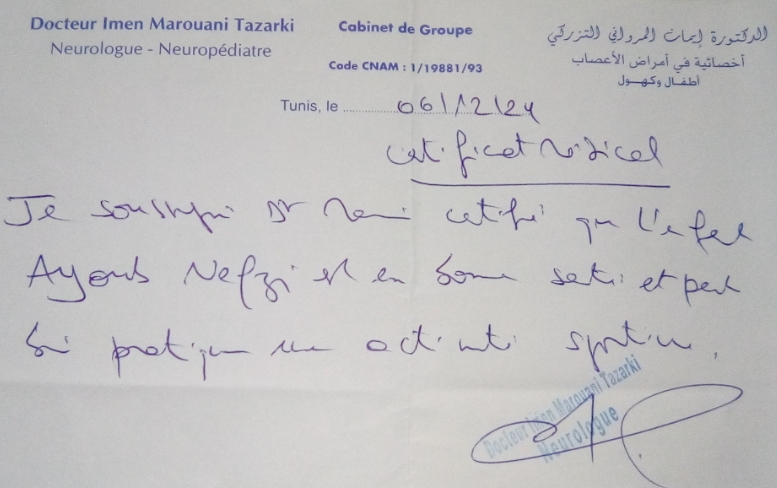 Docteur Imen Marouani Tazarki
Neurologue - Neuropédiatre
Cabinet de Groupe
Code CNAM : 1/19881/93
الدكتورة إيمان المرواني التزركي
أخصائية في أمراض الأعصاب
أطفال وكهول
Tunis, le 06/12/24
Certificat Médical
Je soussigné Dr certifie que l'enfant
Ayoub Nefzi est en bonne santé et peut
pratiquer une activité sportive.
Docteur Imen Marouani Tazarki
Neurologue